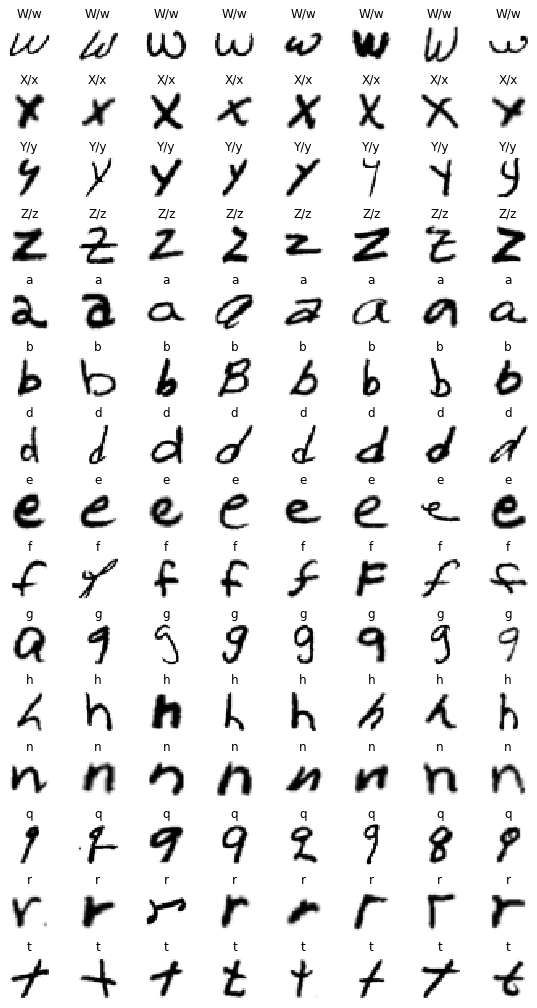 W/w W/w W/w W/w W/w W/w W/w W/w
w w w w w w w w
X/x X/x X/x X/x X/x X/x X/x X/x
x x x x x x x x
Y/y Y/y Y/y Y/y Y/y Y/y Y/y Y/y
y y y y y y y y
Z/z Z/z Z/z Z/z Z/z Z/z Z/z Z/z
z z z z z z z z
a a a a a a a a
a a a a a a a a
b b b b b b b b
b b b B b b b b
d d d d d d d d
d d d d d d d d
e e e e e e e e
e e e e e e e e
f f f f f f f f
f f f f f F f f
g g g g g g g g
a g g g g g g g
h h h h h h h h
h h h h h h h h
n n n n n n n n
n n n n n n n n
q q q q q q q q
q q q q q q q q
r r r r r r r r
r r r r r r r r
t t t t t t t t
t t t t t t t t